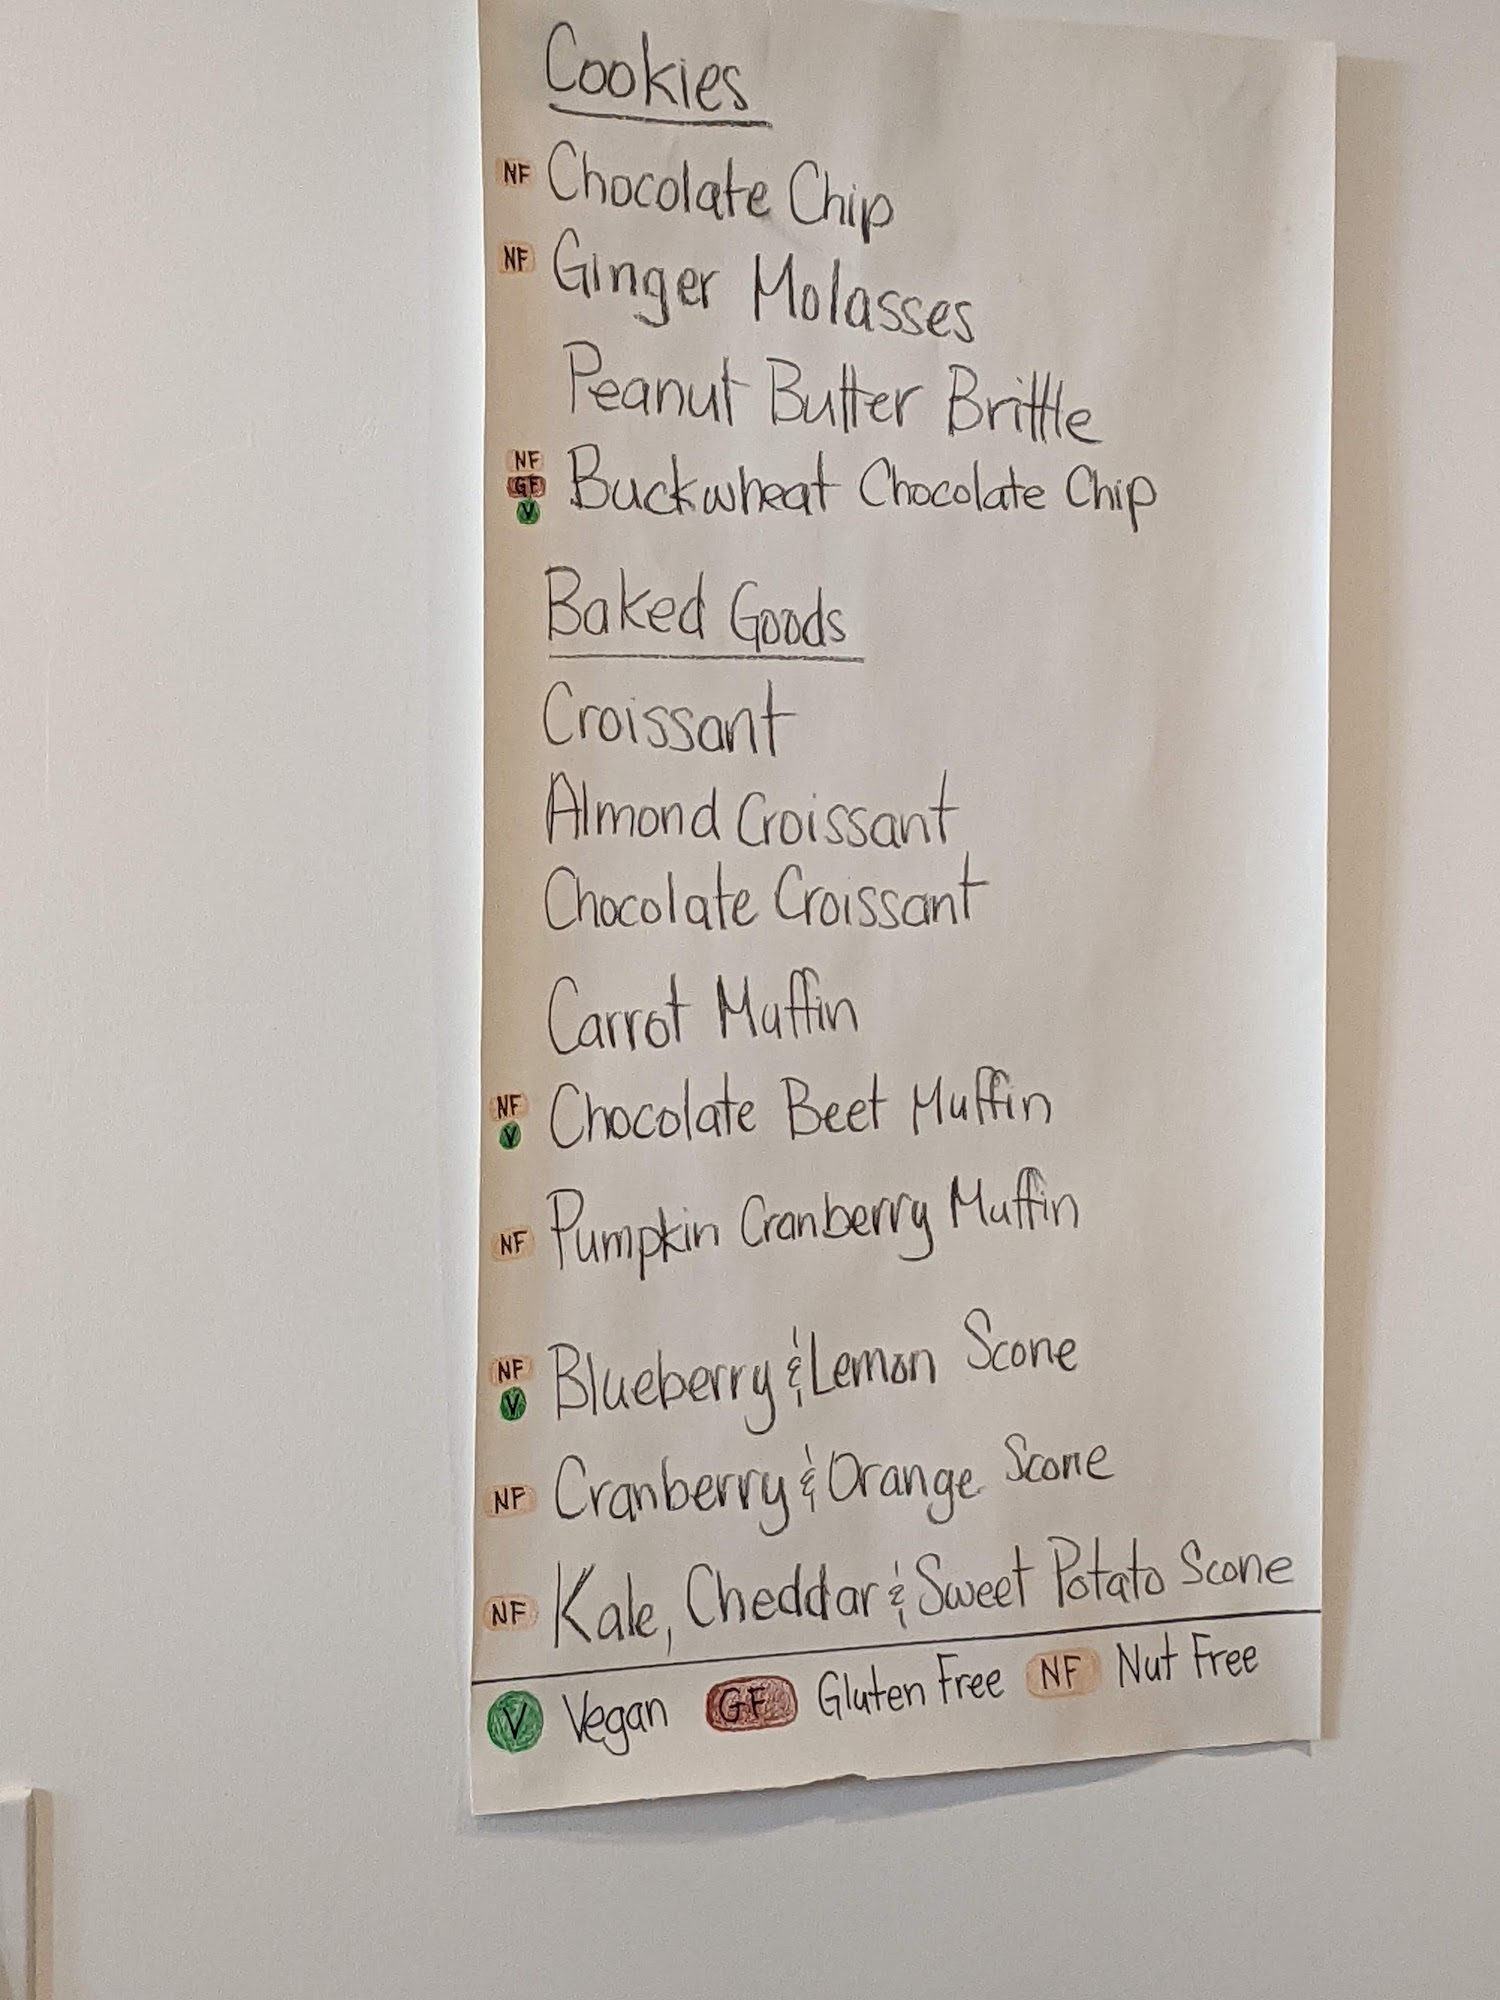 Cookies
NF Chocolate Chip
NF Ginger Molasses
Peanut Butter Brittle
NF GF V Buckwheat Chocolate Chip
Baked Goods
Croissant
Almond Croissant
Chocolate Croissant
Carrot Muffin
NF V Chocolate Beet Muffin
NF Pumpkin Cranberry Muffin
NF V Blueberry & Lemon Scone
NF Cranberry & Orange Scone
NF Kale, Cheddar & Sweet Potato Scone
V Vegan GF Gluten Free NF Nut Free